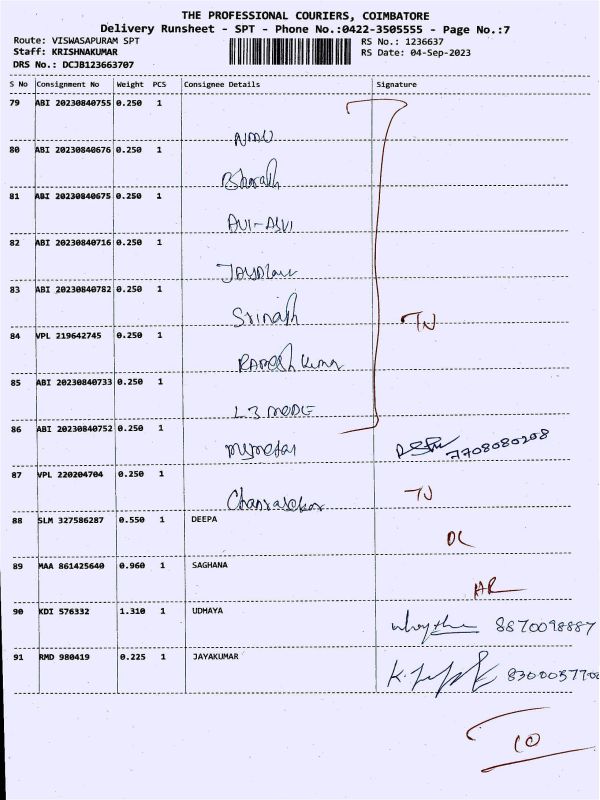 THE PROFESSIONAL COURIERS, COIMBATORE
Delivery Runsheet - SPT - Phone No.:0422-3505555 - Page No.:7
Route: VISWASAPURAM SPT RS No.: 1236637
Staff: KRISHNAKUMAR RS Date: 04-Sep-2023
DRS No.: DCJB123663707
S No Consignment No Weight PCS Consignee Details Signature
79 ABI 20230840755 0.250 1
80 ABI 20230840676 0.250 1
Bharath
81 ABI 20230840675 0.250 1
82 ABI 20230840716 0.250 1
83 ABI 20230840782 0.250 1
Srinath TJ
84 VPL 219642745 0.250 1
Ramesh Kumar
85 ABI 20230840733 0.250 1
86 ABI 20230840752 0.250 1
7708080208
87 VPL 220204704 0.250 1
TJ
Chanrasekar
88 SLM 327586287 0.550 1 DEEPA
DL
89 MAA 861425640 0.960 1 SAGHANA
AR
90 KDI 576332 1.310 1 UDHAYA
8870098887
91 RMD 980419 0.225 1 JAYAKUMAR
10